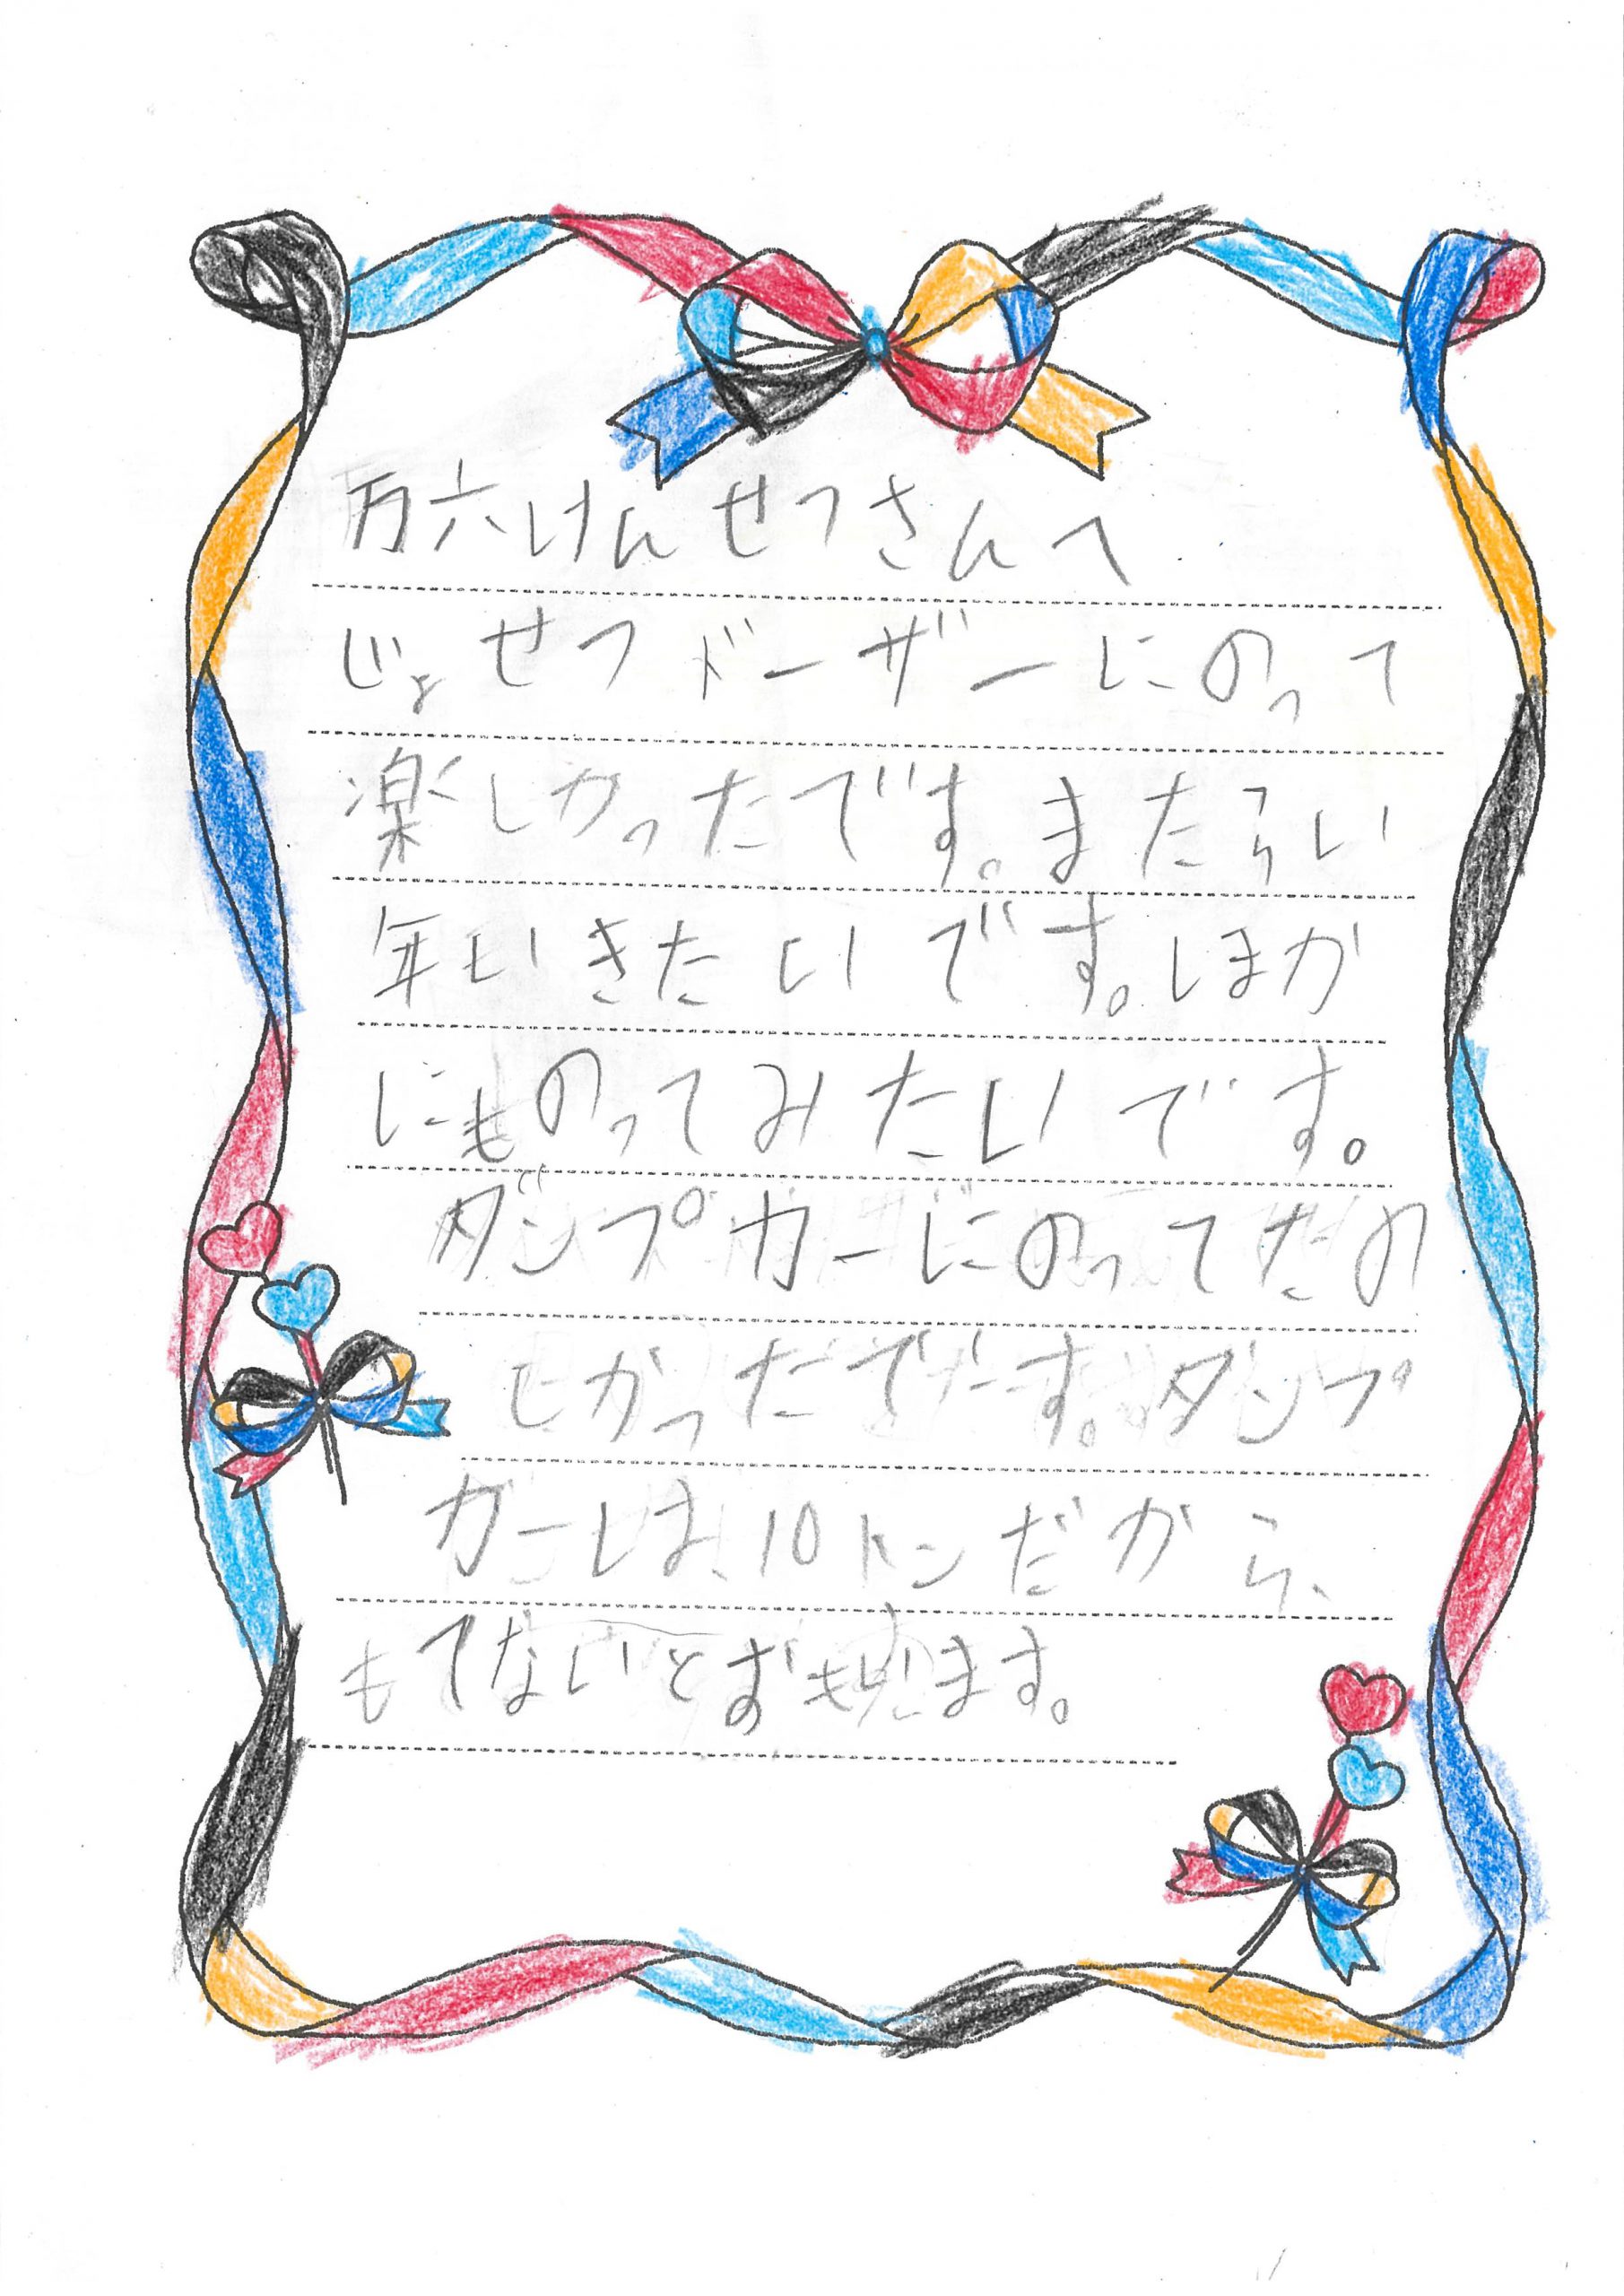 万六けんせつさんへ
じょせつドーザーにのって
楽しかったです。またらい
年もいきたいです。ほか
にものってみたいです。
ダンプカーにのってたの
しかったです。ダンプ
カーは、10トンだから、
もてないとおもいます。